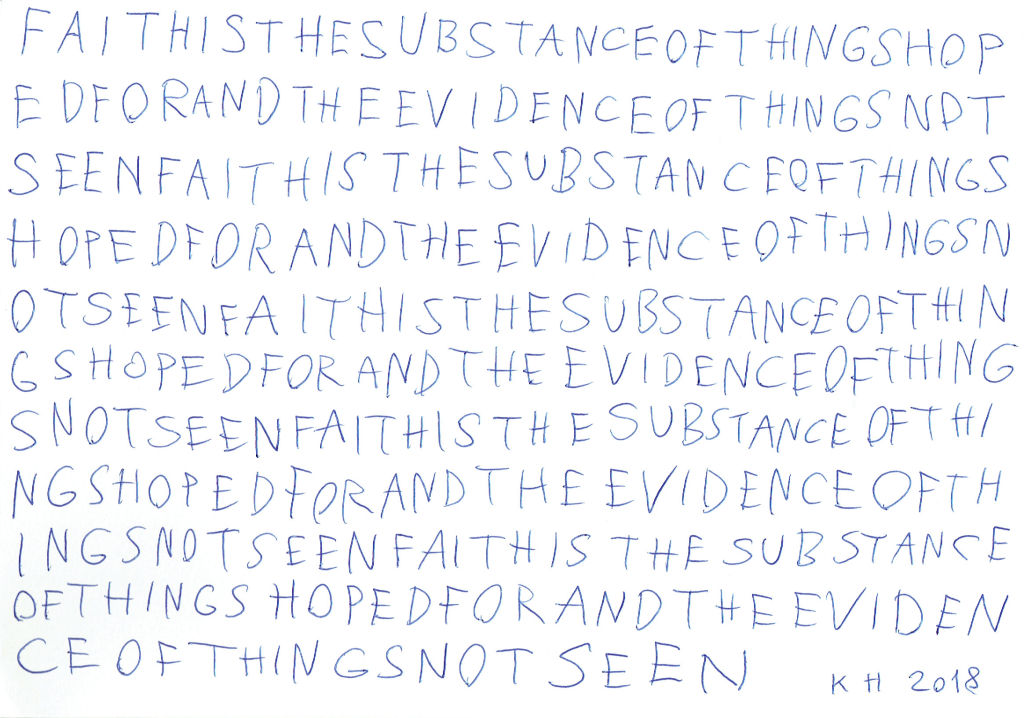 FAITHISTHESUBSTANCEOFTHINGSHOP
EDFORANDTHEEVIDENCEOFTHINGSNOT
SEENFAITHISTHESUBSTANCEOFTHINGS
HOPEDFORANDTHEEVIDENCEOFTHINGSN
OTSEENFAITHISTHESUBSTANCEOFTHIN
GSHOPEDFORANDTHEEVIDENCEOFTHING
SNOTSEENFAITHISTHESUBSTANCEOFTHI
NGSHOPEDFORANDTHEEVIDENCEOFTH
INGSNOTSEENFAITHISTHESUBSTANCE
OFTHINGSHOPEDFORANDTHEEVIDEN
CEOFTHINGSNOTSEEN
KH 2018